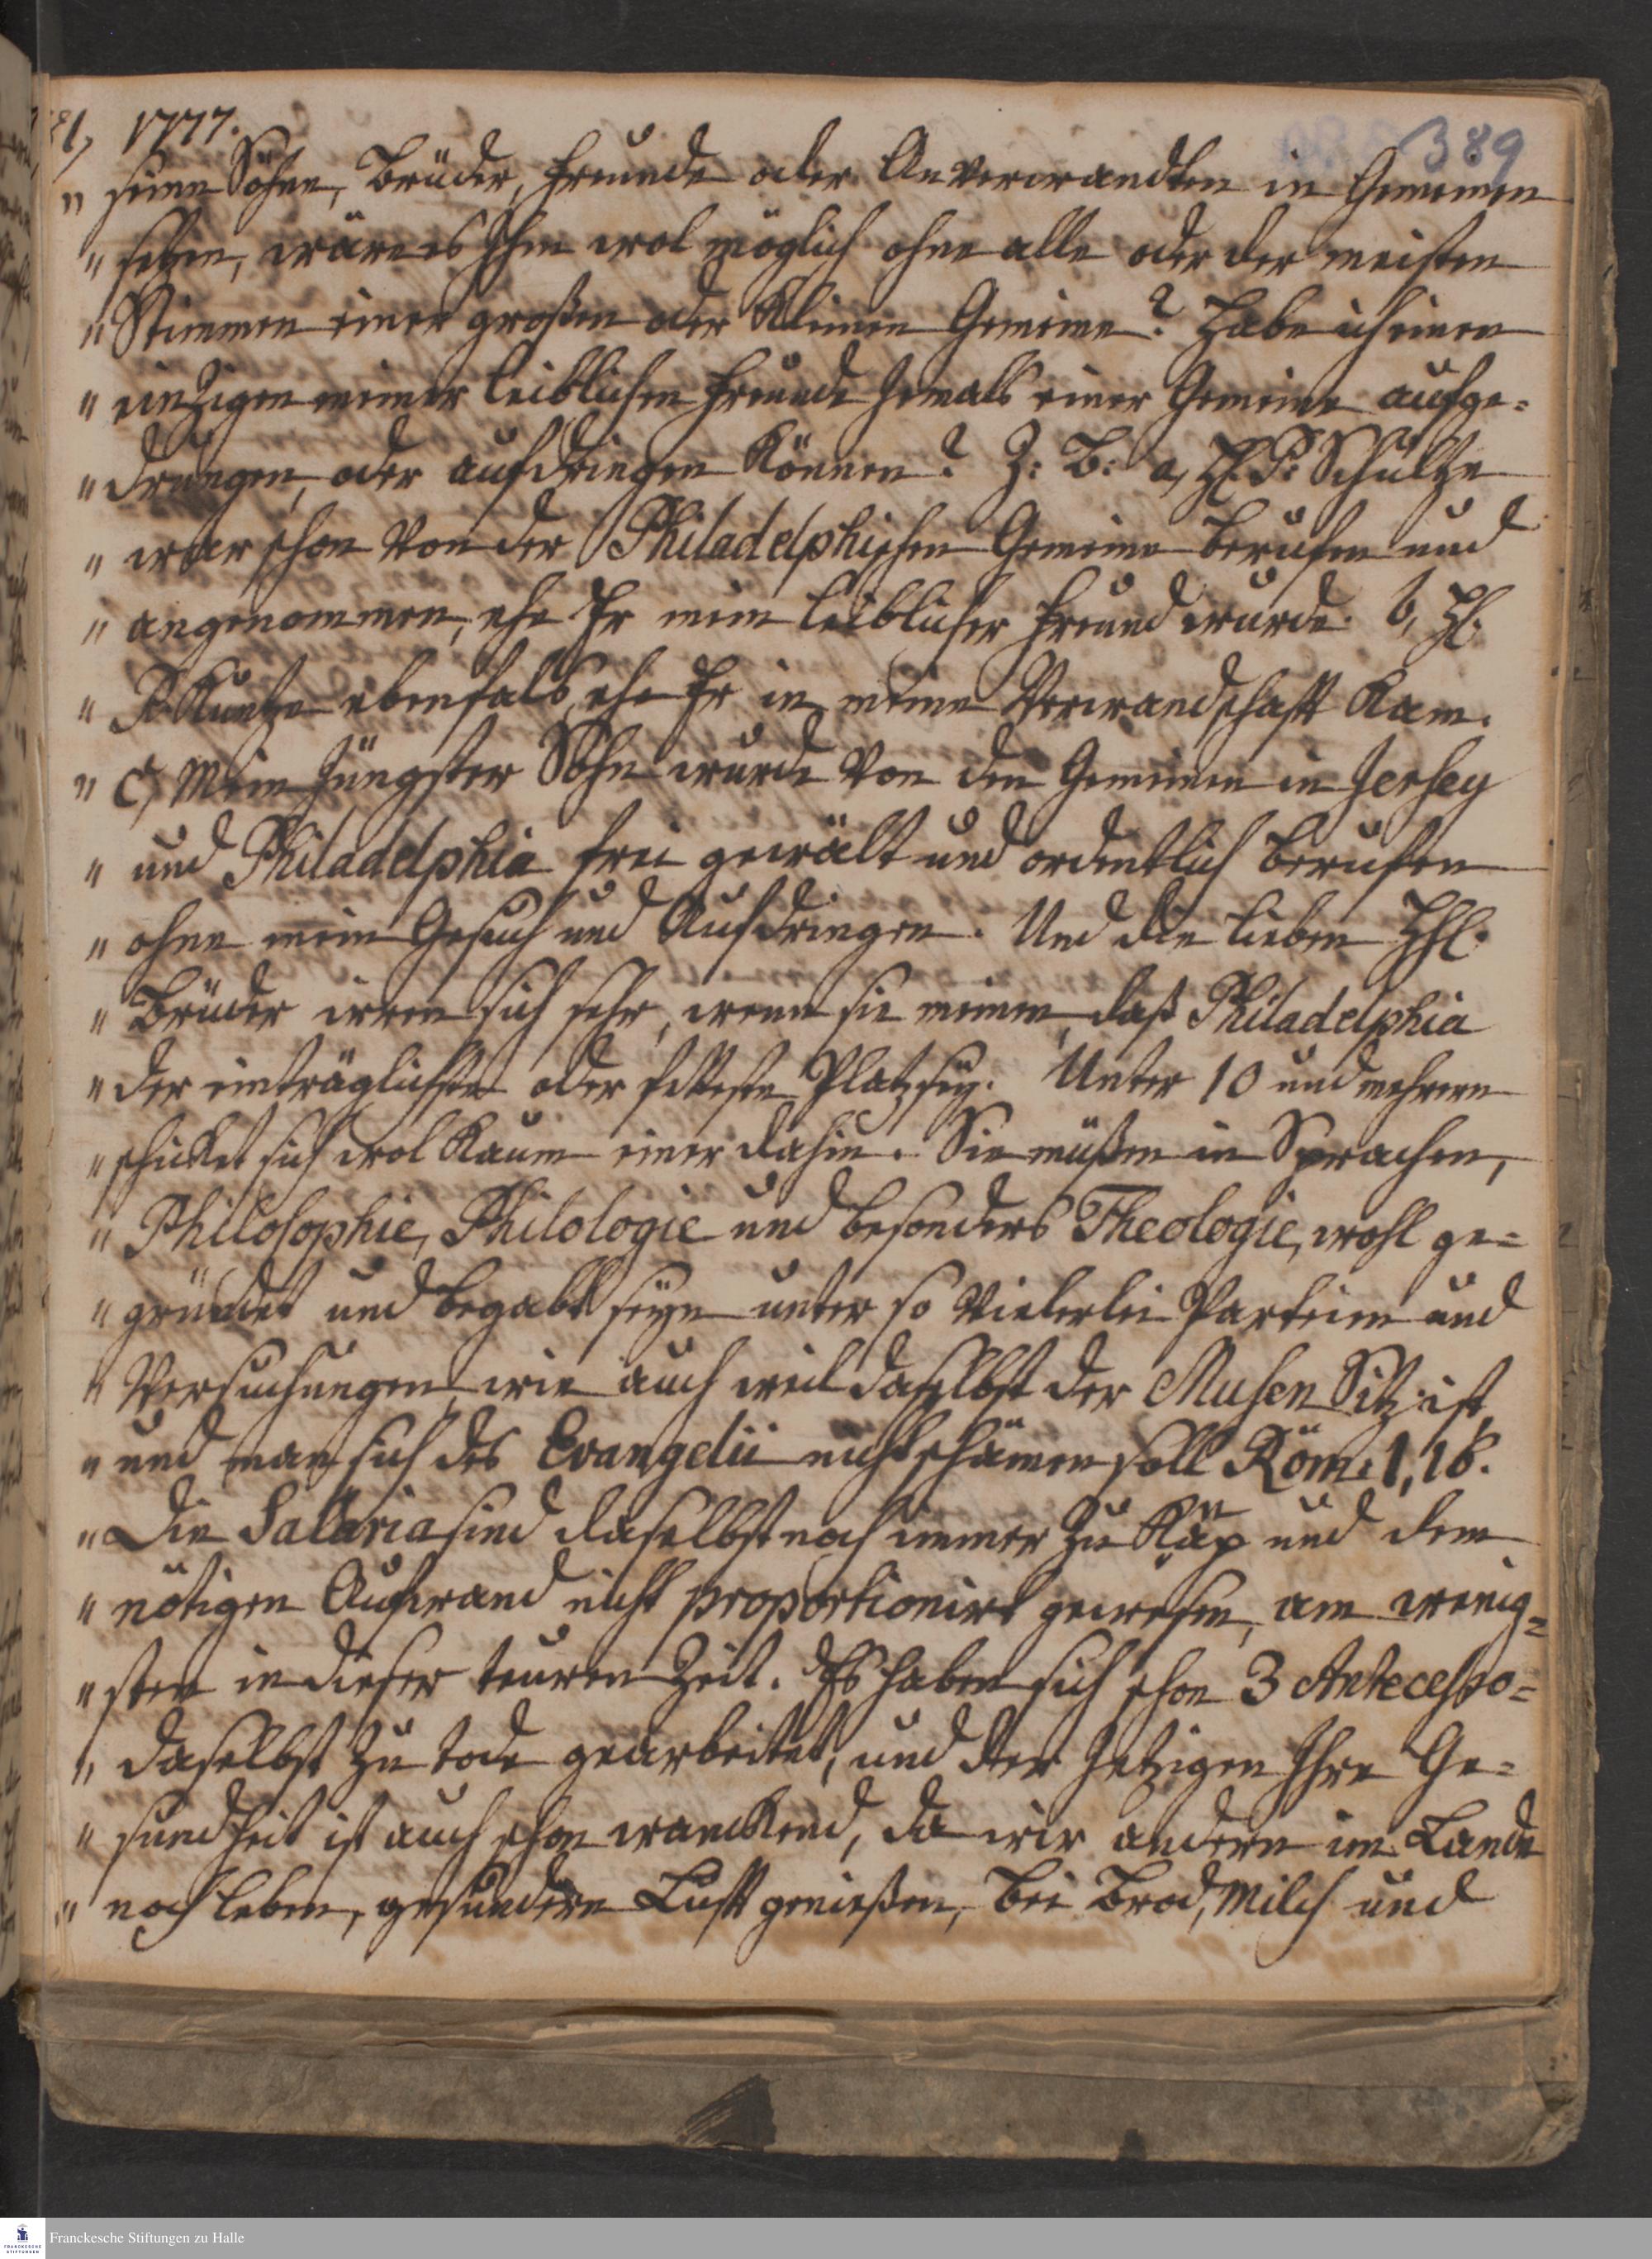 81, 1777.
389
" seine Söhne, Brüder, Freunde oder Anverwandten in Gemeinen
" sezen, wäre es Ihm wol möglich ohne alle oder der meisten
" Stimmen einer großen oder kleinen Gemeine? Habe ich einen
" einzigen meiner leiblichen Freunde jemals einer Gemeine aufge=
" drungen, oder aufdringen können? Z: B: a, H. P. Schultze
" war schon von der Philadelphischen Gemeine berufen und
" angenommen, ehe Er mein leiblicher Freund wurde. b, H.
" P Kuntze ebenfals, ehe Er in meine Verwandschaft kam.
" c, Mein jüngster Sohn wurde von den Gemeinen in Jersey
" und Philadelphia frei gewält und ordentlich berufen
" ohne mein Gesuch und Aufdringen. Und die lieben HH.
" Brüder irren sich sehr, wenn sie meinen, daß Philadelphia
" der einträglichste oder fetteste Platz sey. Unter 10 und mehrern
" schicket sich wol kaum einer dahin. Sie müßen in Sprachen,
" Philosophie, Philologie und besonders Theologie, wohl ge=
" gründet und begabt seyn unter so vielerlei Parteien und
" Versuchungen, wie auch weil daselbst der Musen Sitz ist,
" und man sich des Evangelii nicht schämen soll Röm: 1, 16.
" Die Salaria sind daselbst noch immer zu knap und dem
" nötigen Aufwand nicht proportionirt gewesen, am wenig=
" sten in dieser teuren Zeit. Es haben sich schon 3 Antecesso=
" daselbst zu tode gearbeitet, und der jetzigen Ihre Ge=
" sundheit ist auch schon wanckend, da wir andern im Lande
" noch leben, gesundere Luft genießen, bei Brod, Milch und
Franckesche Stiftungen zu Halle
FRANCKESCHE STIFTUNGEN